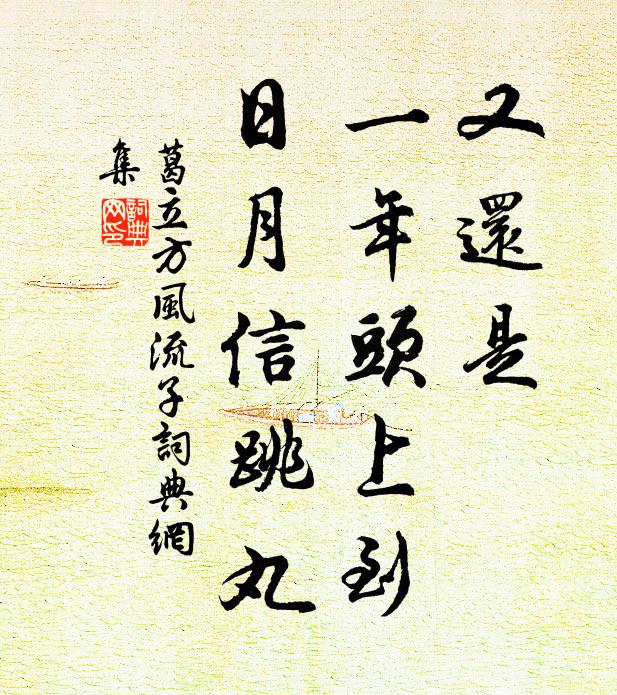 又還是
一年頭上到
日月信跳丸
葛立方風流子詞典網
集
詞典网印